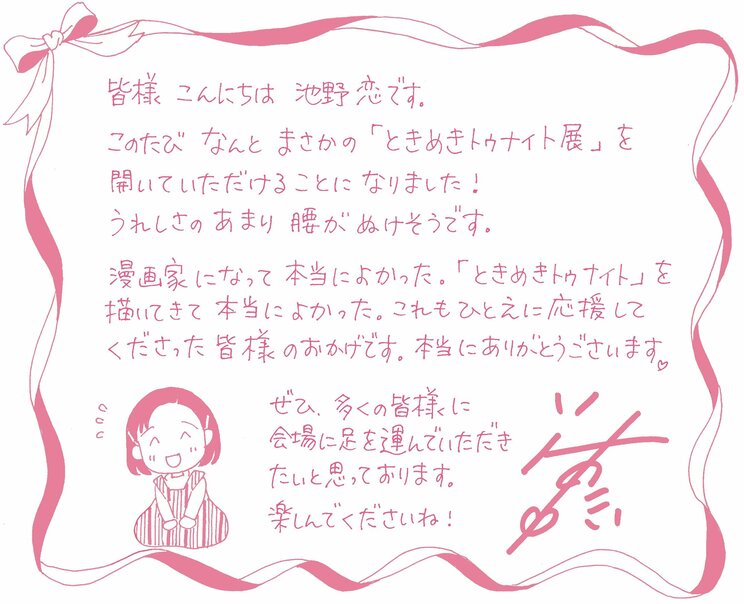 皆様 こんにちは 池野 恋です。
このたび なんと まさかの「ときめきトゥナイト展」を
開いていただけることに なりました!
うれしさの あまり 腰が ぬけそうです。
漫画家になって 本当によかった。「ときめきトゥナイト」を
描いてきて 本当によかった。これもひとえに応援して
くださった 皆様のおかげです。本当にありがとうございます♡
ぜひ、多くの皆様に
会場に足を運んでいただき
たいと思っております。
楽しんでくださいね!